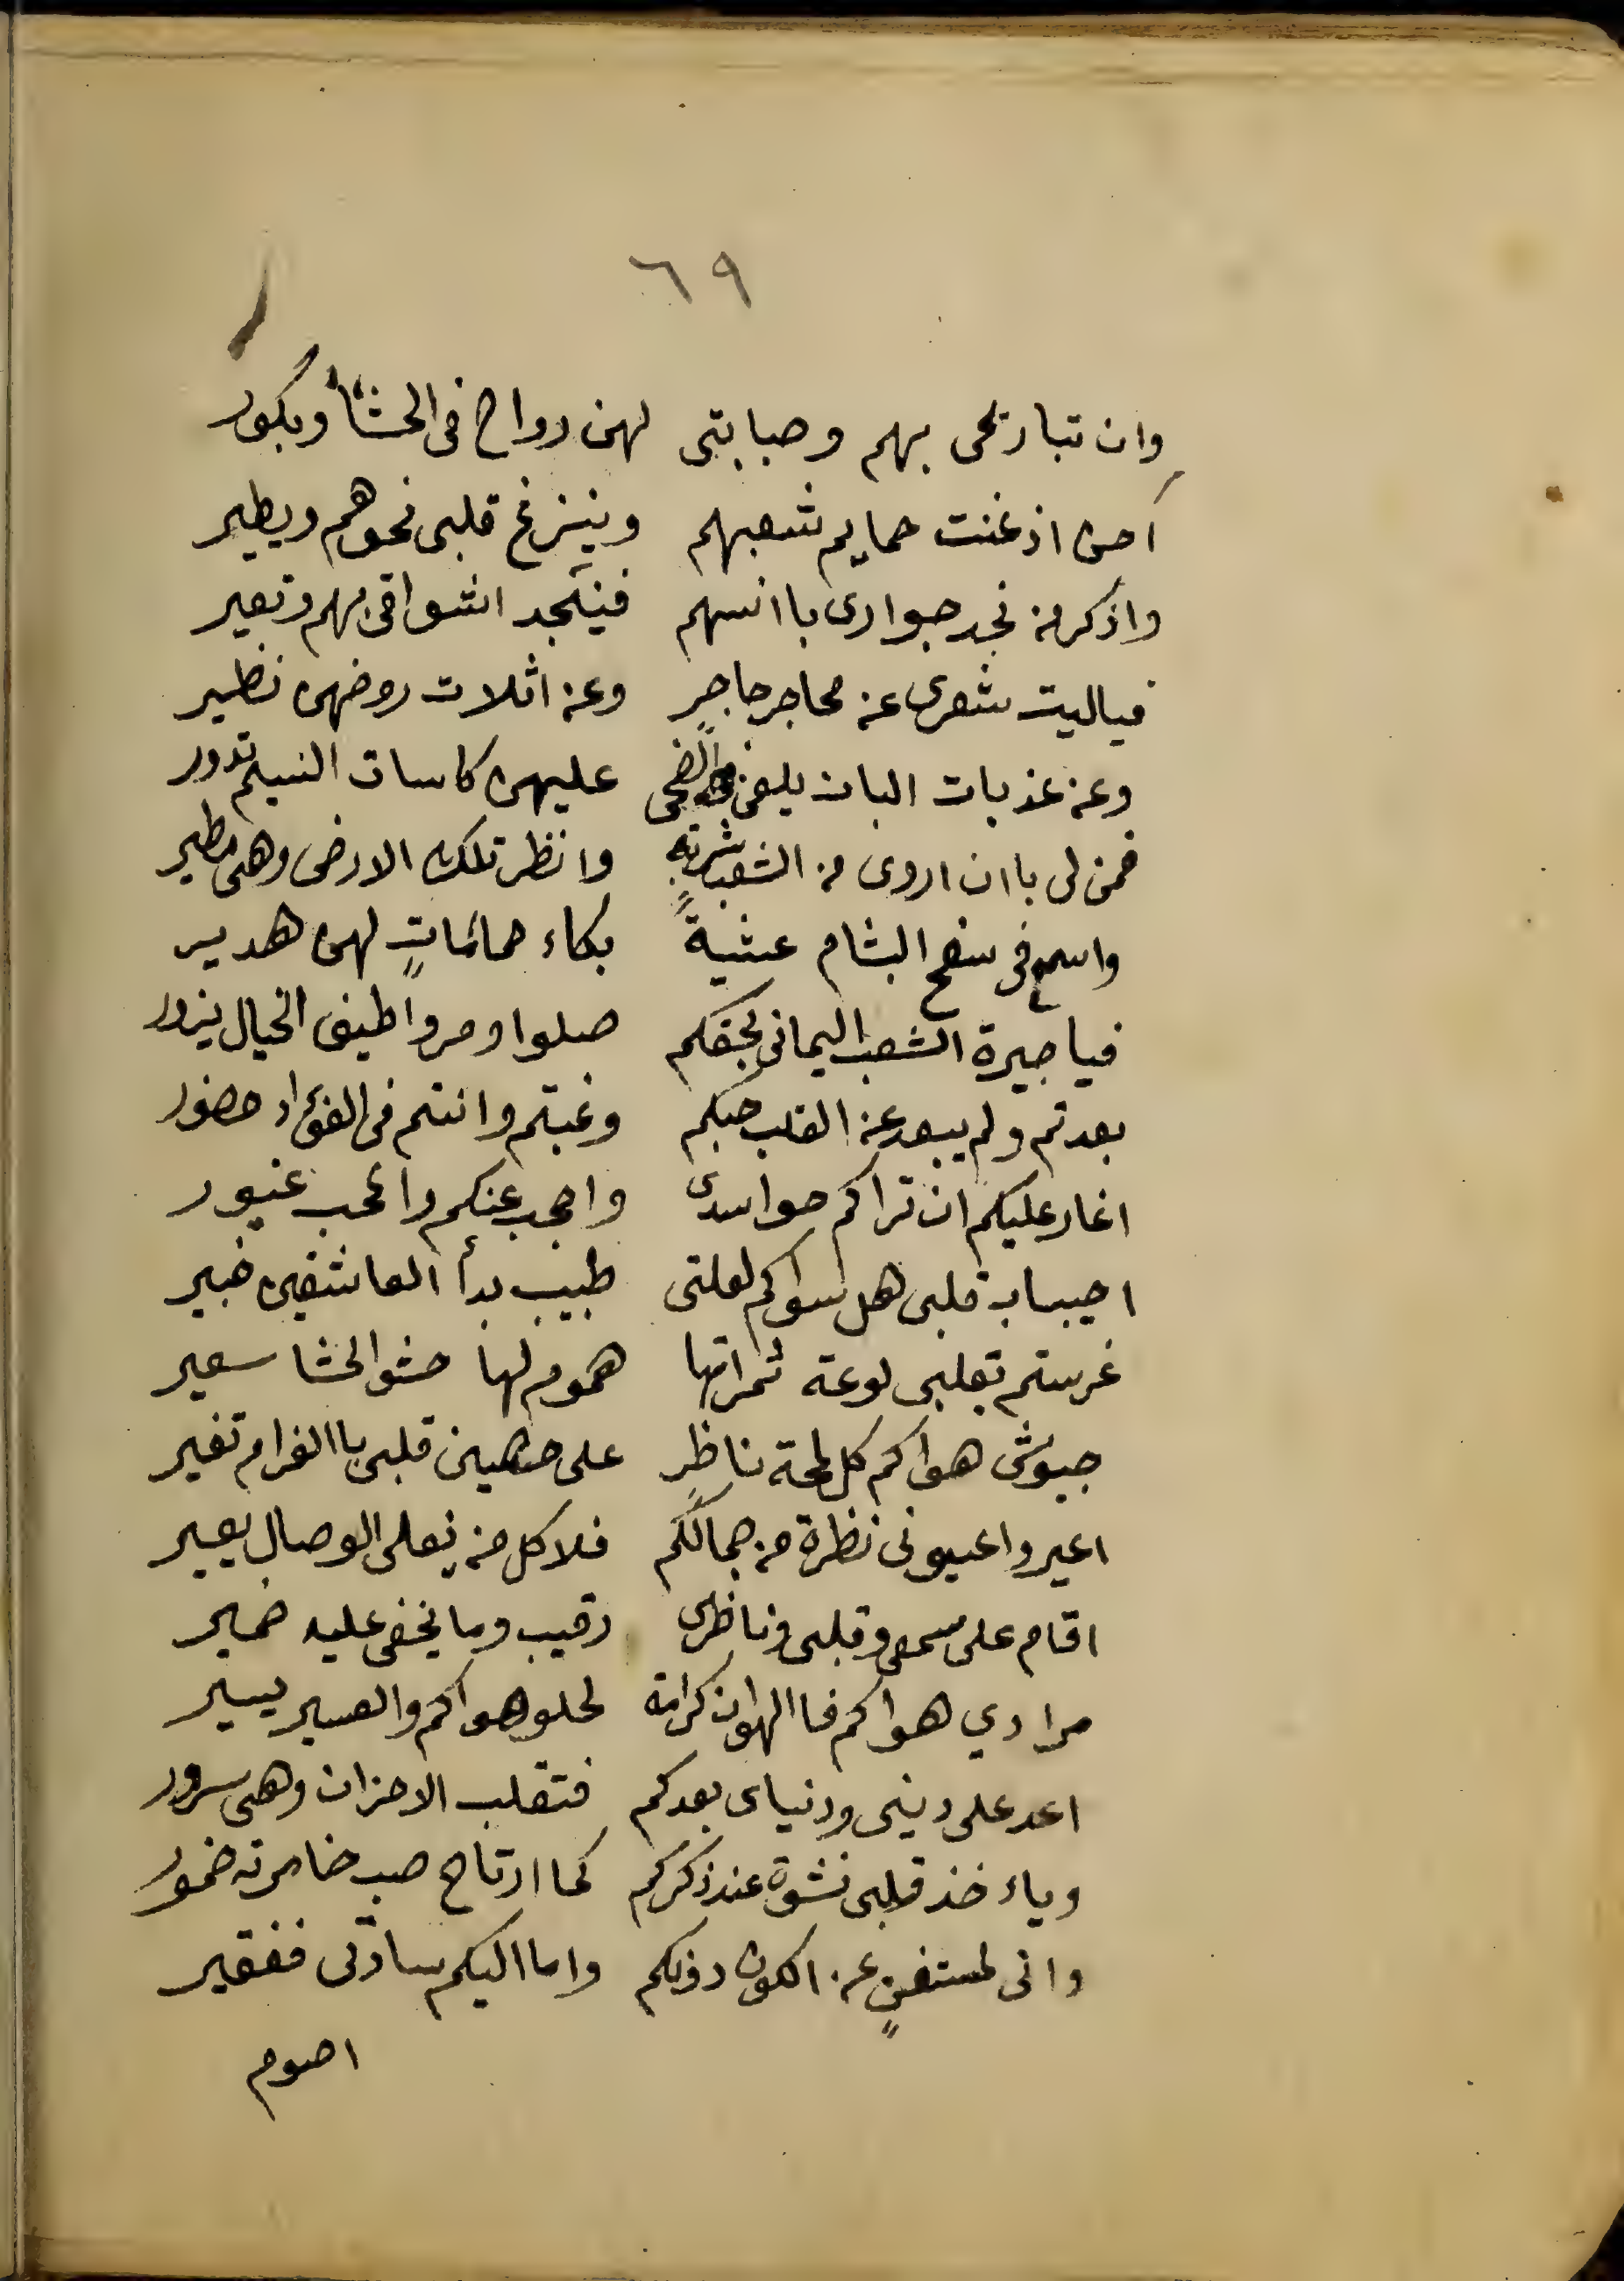 ٦٩
وان تباريحى بهم وصبابتى لهن رواح فى الحشا وبكور
أحن اذ غنت حمايم شعبهم وينزغ قلبى نحوهم ويطير
واذكر من نجد جوارى باانسهم فينجد اشواقى بهم وتغير
فياليت شعرى عن محاجر حاجرٍ وعن اثلات روضهن نظير
وعن عذبات البان يلعبن الضحى عليهن كاسات النسيم تدور
فمن لى باان اروى من الشعب شربةً وانظر تلك الارض وهى مطير
واسمع فى سفح البشام عشيةً بكاء حمائماتٍ لهن هدير
فيا جيرة الشعب اليمانى بحقكم صلوا ومروا طيف الخيال يزور
بعدتم ولم يبعد عن القلب حبكم وغبتم وانتم فى الفؤاد حضور
اغار عليكم ان تراكم حواسدى واحجب عنكم والمحب غيور
احيباب قلبى هل سواكم لعلتى طبيب بدأ العاشقين خبير
غرستم بقلبى لوعة ثمراتها هموم لها حشو الحشا سعير
جيوش هواكم كل لمحة ناظرٍ على حصين قلبى باالغرام تغير
اعيروا عيونى نظرة من جمالكم فلا كل من يغلى الوصال يعير
اقام على سمعى وقلبى وناظرى رقيب وما يخفى عليه ضمير
مرادي هواكم فاالهوان كرامة لحلو هواكم والعسير يسير
اعد على دينى ودنياى بعدكم فتقلب الاحزان وهى سرور
وياء خذ قلبى نشوة عند ذكركم كما ارتاح صب خامرته خمور
وانى لمستغنٍ عن الكون دونكم واما اليكم سادتى ففقير
اصوم